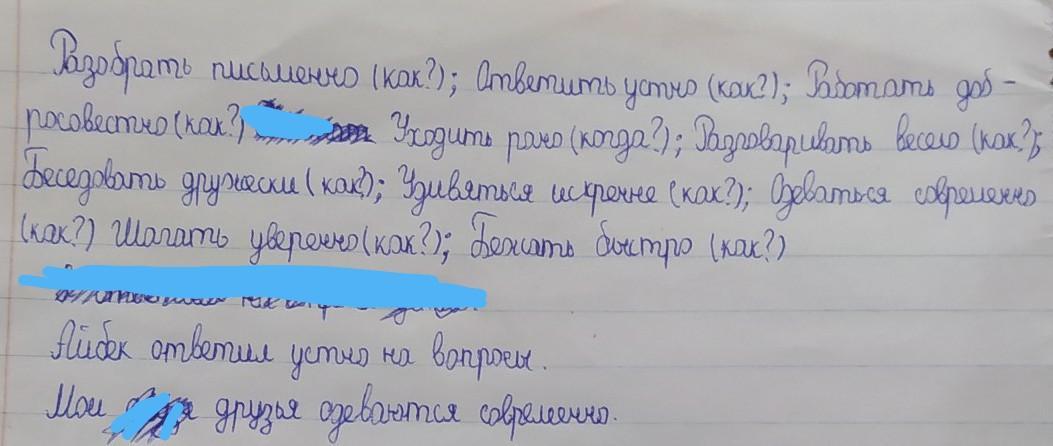 Разобрать письменно (как?); Ответить устно (как?); Работать доб-
росовестно (как?) Уходить рано (когда?); Разговаривать весело (как?);
Беседовать дружески (как?); Удивляться искренне (как?); Одеваться современно
(как?) Шагать уверенно (как?); Бежать быстро (как?)
Айбек ответил устно на вопросы.
Мои друзья одеваются современно.